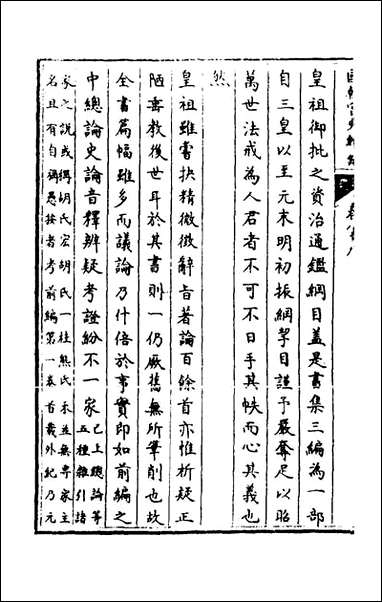 皇祖御批之資治通鑑綱目蓋是書集三編為一部
自三皇以至元末明初振綱挈目謹予嚴奪足以昭
萬世法戒為人君者不可不日手其帙而心其義也
然
皇祖雖嘗抉精微徴辭旨著論百餘首亦惟析疑正
陋垂教後世耳於其書則一仍厥舊無所筆削也故
全書篇幅雖多而議論乃什倍於事實即如前編之
中總論史論音釋辨疑考證紛不一家已上總論等五種雜引諸
家之說或稱胡氏宏胡氏一桂熊氏禾並無專家主
名且有自稱愚按者考前編第一卷首載外紀乃元